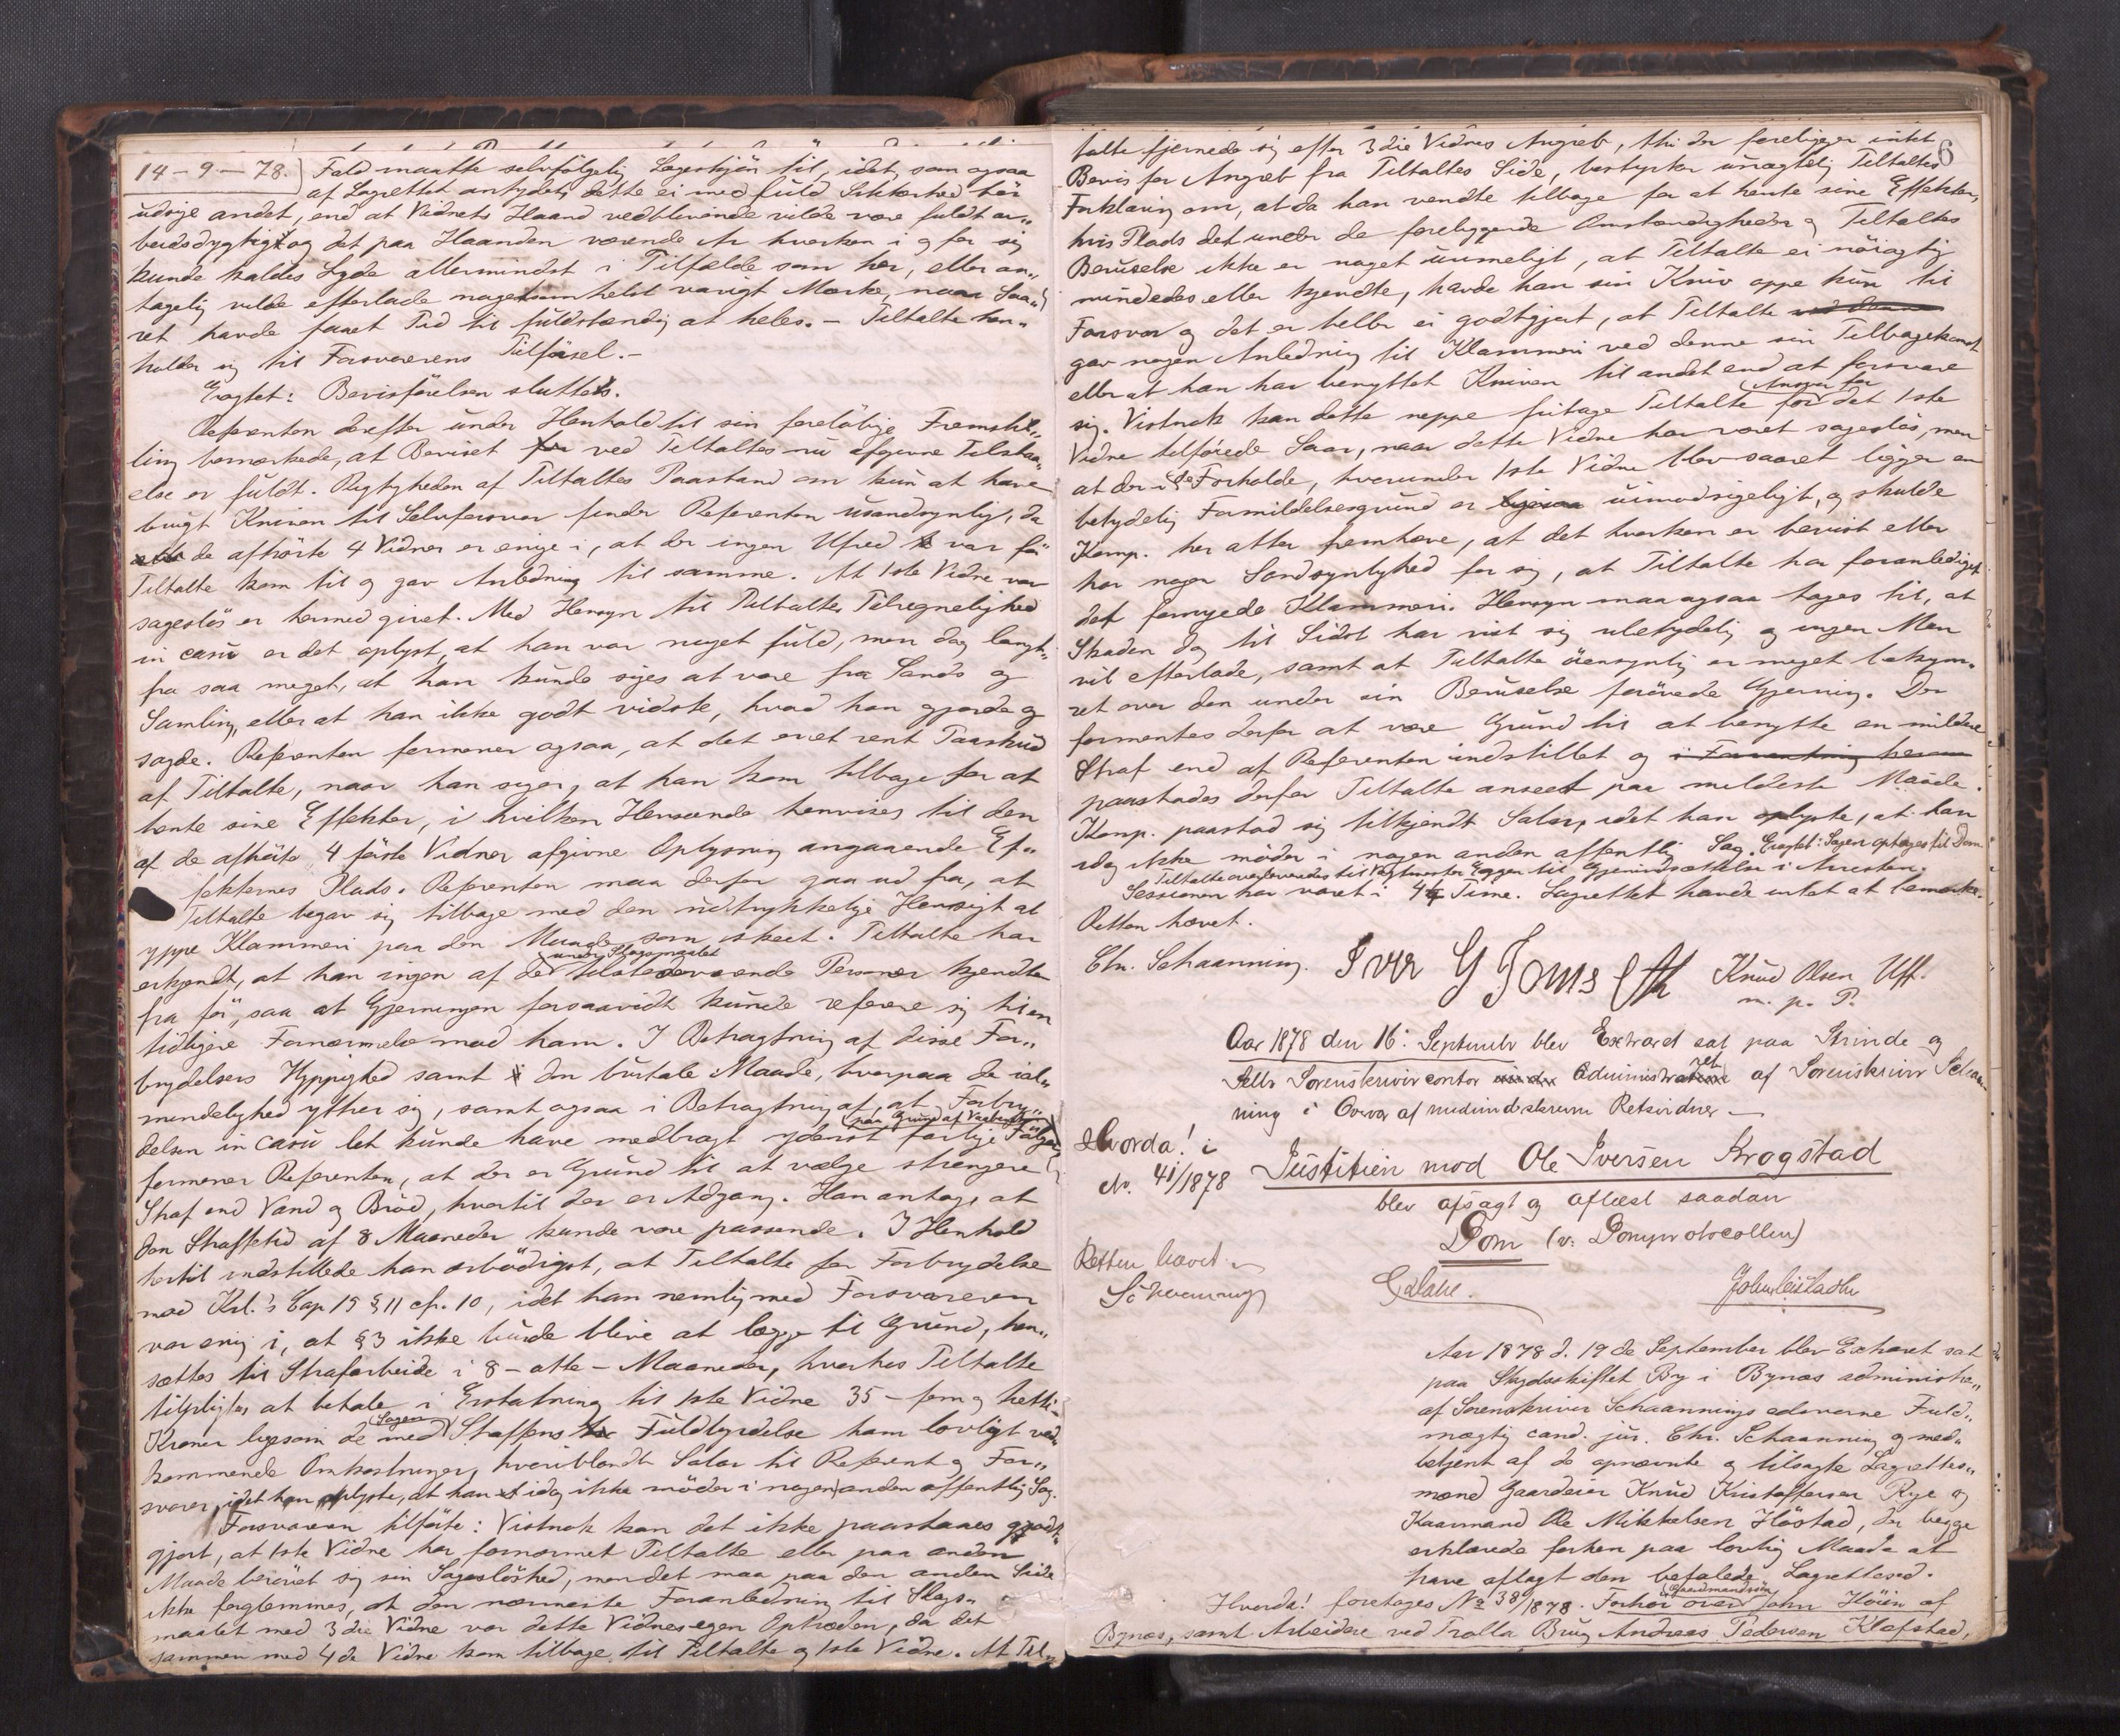 14-9-78. Fald maatte selvfölgelig Lægeskjön til, idet, som ogsaa
af Lagrettet antydet, dette ei med fuld Sikkerhed tör
udsige andet, end at Vidnets Haand vedblivende vilde være fuldt ar„
beidsdygtig og det paa Haanden værende Ar hverken i og for sig
kunde kaldes Lyde allermindst i Tilfælde som her, eller an„
tagelig vilde efterlade nogetsomhelst varigt Mærke, naar Saa„
ret havde faaet Tid til fuldstændig at heles. – Tiltalte hen„
holder sig til Forsvarerens Tilförsel. –
Eragtet: Bevisförelsen sluttes.
Referenten derefter under Henhold til sin forelöbige Fremstil„
ling bemærkede, at Beviset ved Tiltaltes nu afgivne Tilstaa„
else er fuldt. Rigtigheden af Tiltaltes Paastand om kun at have
brugt Kniven til Selvforsvar finder Referenten usandsynlig, da
de afhörte 4 Vidner er enige i, at der ingen Ufred var för
Tiltalte kom til og gav Anledning til samme. At 1ste Vidne var
sageslös er hermed givet. Med Hensyn til Tiltaltes Tilregnelighed
in casu er det oplyst, at han var noget fuld, men dog langt„
fra saa meget, at han kunde siges at være fra Sands og
Samling, eller at han ikke godt vidste, hvad han gjorde og
sagde. Referenten formener ogsaa, at det er et rent Paaskud
af Tiltalte, naar han siger, at han kom tilbage for at
hente sine Effekter, i hvilken Henseende henvises til den
af de afhörte 4 förste Vidner afgivne Oplysning angaaende Ef„
fekternes Plads. Referenten maa derfor gaa ud fra, at
Tiltalte begav sig tilbage med den udtrykkelige Hensigt at
yppe Klammeri paa den Maade, som skeet. Tiltalte har
under Slagsmaalet
erkjendt, at han ingen af de tilstedeværende Personer kjendte
fra för, saa at Gjerningen forsaavidt kunde referere sig til en
tidligere Fornærmelse mod ham. I Betragtning af disse For„
brydelsers Hyppighed samt den brutale Maade, hvorpaa de ial„
mindelighed yttrer sig, samt ogsaa i Betragtning af, at Forbry„
paa Grund af
delsen in casu let kunde have medbragt yderst farlige Fölger,
formener Referenten, at der er Grund til at vælge strengere
Straf end Vand og Bröd, hvortil der er Adgang. Han antager at
den Straffetid af 8 Maaneder kunde være passende. I Henhold
hertil indstillede han ærbödigst, at Tiltalte for Forbrydelse
mod Krl.'s Cap 15 § 11 cfr. 10, idet han nemlig med Forsvareren
var enig i, at § 3 ikke burde blive at lægge til Grund, hen„
sættes til Strafarbeide i 8 – otte – Maaneder, hvorhos Tiltalte
tilpligtes at betale i Erstatning til 1ste Vidne 35 – fem og tretti –
Sagen
Kroner ligesom de med Straffens Fuldbyrdelse ham lovligt ved„
kommende Omkostninger, hvoriblandt Salær til Referent og For„
svarer, idet han oplyste, at han idag ikke möder i nogen anden offentlig Sag.
Forsvareren tilförte: Vistnok kan det ikke paastaaes godt„
gjort, at 1ste Vidne har fornærmet Tiltalte eller paa anden
Maade berövet sig sin Sageslöshed, men det maa paa den anden Side
ikke forglemmes, at den nærmeste Foranledning til Slags„
maalet med 3die Vidne var dette Vidnes egen Optræden, da det
sammen med 4de Vidne kom tilbage til Tiltalte og 1ste Vidne. At Til„
6
talte fjernede sig efter 3die Vidnes Angreb, thi der foreligger intet
Bevis for Angreb fra Tiltaltes Side, bestyrker unægtelig Tiltaltes
Forklaring om, at da han vendte tilbage for at hente sine Effekter,
hvis Plads det under de foreliggende Omstændigheder og Tiltaltes
Beruselse ikke er noget urimeligt, at Tiltalte ei nöiagtig
mindedes eller kjendte, havde han sin Kniv oppe kun til
Forsvar og det er heller ei godtgjort, at Tiltalte
gav nogen Anledning til Klammeri ved denne sin Tilbagekomst
eller at han har benyttet Kniven til andet end at forsvare
Ansvar for
sig. Vistnok kan dette neppe fritage Tiltalte for det 1ste
Vidne tilföiede Saar, naar dette Vidne har været sageslös, men
at der i de Forholde, hvorunder 1ste Vidne blev saaret ligger en
betydelig Formildelsesgrund er uimodsigeligt, og skulde
Komp. her atter fremhæve, at det hverken er bevist eller
har nogen Sandsynlighed for sig, at Tiltalte har foranlediget
det fornyede Klammeri. Hensyn maa ogsaa tages til, at
Skaden dog til Sidst har vist sig ubetydelig og ingen Men
vil efterlade, samt at Tiltalte öiensynlig er meget bekym„
ret over den under sin Beruselse forövede Gjerning. Der
formentes derfor at være Grund til at benytte en mildere
Straf end af Referenten indstillet og i Forventning herom
paastodes derfor Tiltalte anseet paa mildeste Maade.
Komp. paastod sig tilkjendt Salær, idet han oplyste, at han
idag ikke möder i nogen anden offentlig Sag. Eragtet: Sagen optages til Dom.
Tiltalte overleveredes til Vagtmester Eggen til Gjenindsættelse i Arresten.
Sessionen har varet i 4 Time. Lagrettet havde intet at bemærke.
Retten hævet.
Chr. Schaanning. Iver Knud Olsen Uff.
m. p. P.
Aar 1878 den 16. September blev Extraret sat paa Strinde og
Selbu Sorenskrivercontor administreret af Sorenskriver Schaan
ning i Overvær af medunderskrevne Retsvidner –
Hvorda! i
No. 41/1878 Justitien mod Ole Iversen Krogstad
blev afsagt og aflæst saadan
Dom (v. Domsprotocollen)
Retten hævet.
Schaanning
Aar 1878 d. 19de September blev Extraret sat
paa Skydsskiftet By i Bynæs administre„
af Sorenskriver Schaannings edsvorne Fuld„
mægtig cand. jur. Chr. Schaanning og med„
betjent af de opnævnte og tilsagte Lagrettes„
mænd Gaardeier Knud Kristoffersen Rye og
Kaarmand Ole Mikkelsen Höstad, der begge
erklærede forhen paa lovlig Maade at
have aflagt den befalede Lagrettesed.
Gaardmandssön
Hvorda! foretages No 38/1878. Forhör over John Höien af
Bynæs, samt Arbeidere ved Trolla Brug Andreas Pedersen Klefstad,